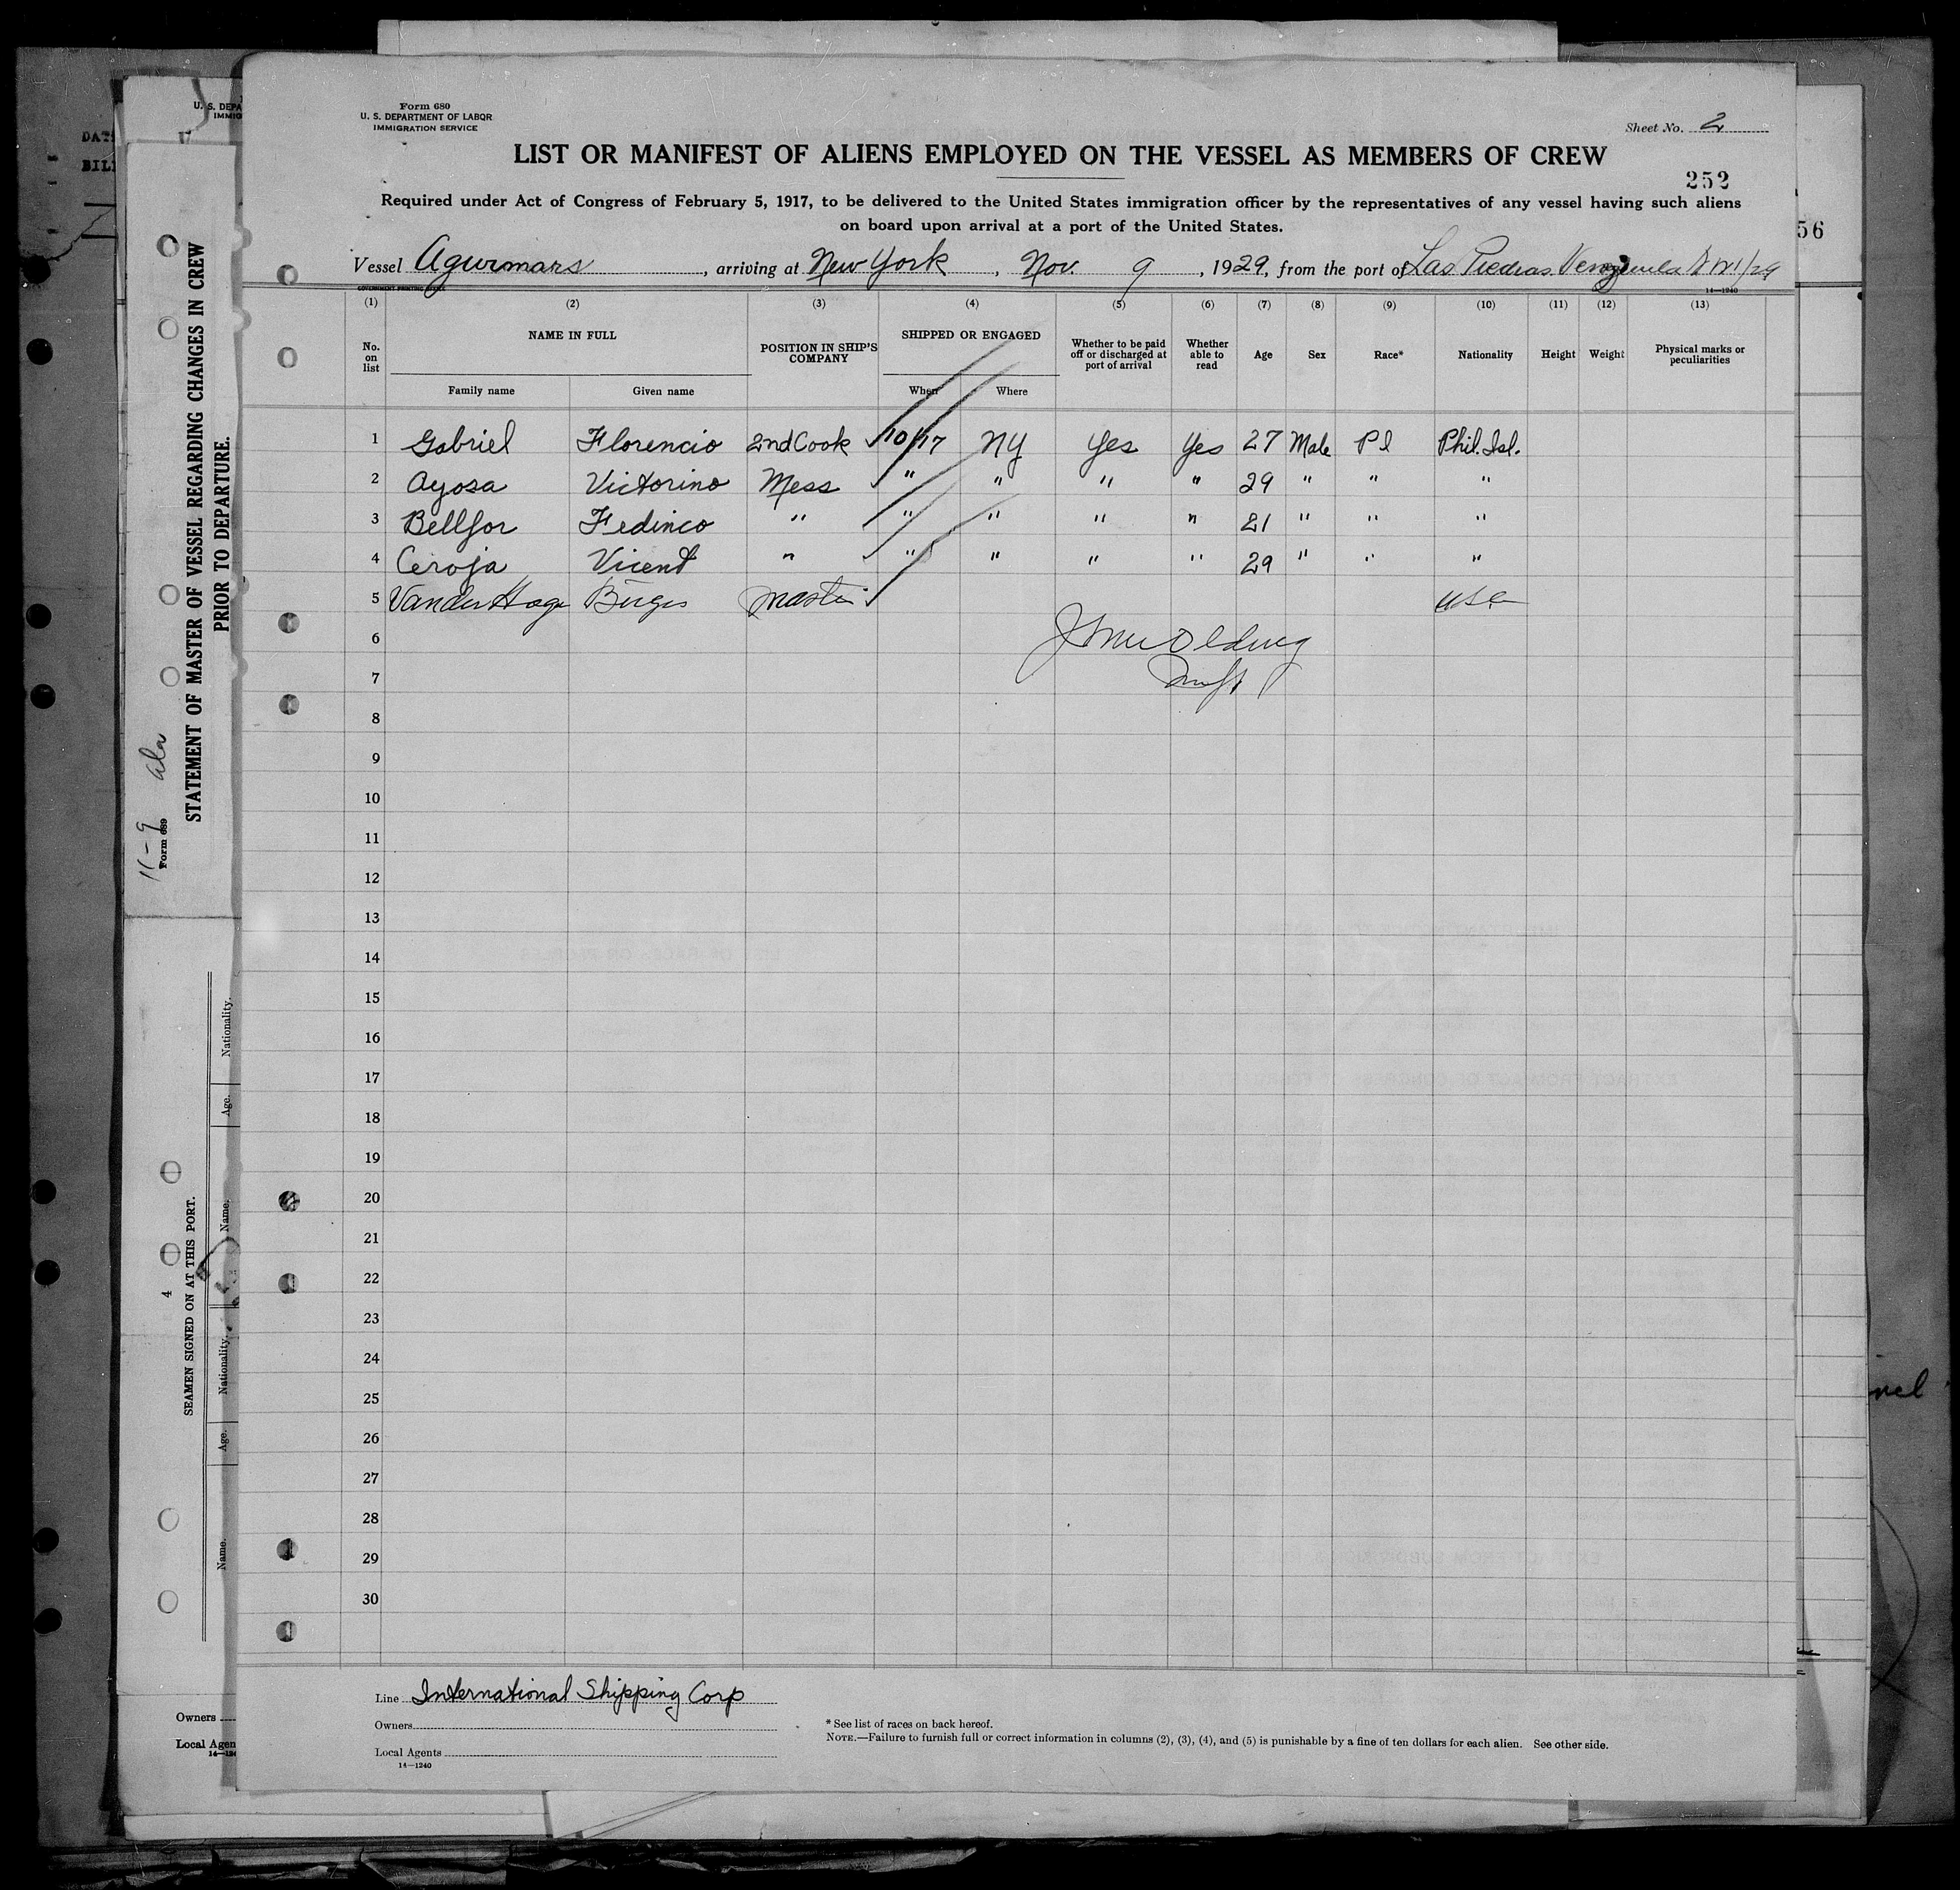 Form 680
U. S. DEPARTMENT OF LABOR
IMMIGRATION SERVICE
Sheet No. 2
LIST OR MANIFEST OF ALIENS EMPLOYED ON THE VESSEL AS MEMBERS OF CREW
252
Required under Act of Congress of February 5, 1917, to be delivered to the United States immigration officer by the representatives of any vessel having such aliens
on board upon arrival at a port of the United States.
Vessel Agwimars, arriving at New York, Nov. 9, 1929, from the port of Las Piedras Venezuela
GOVERNMENT PRINTING OFFICE
14—1240
(1) (2) (3) (4) (5) (6) (7) (8) (9) (10) (11) (12) (13)
No. on list NAME IN FULL POSITION IN SHIP'S COMPANY SHIPPED OR ENGAGED Whether to be paid off or discharged at port of arrival Whether able to read Age Sex Race* Nationality Height Weight Physical marks or peculiarities
Family name Given name When Where
1 Gabriel Florencio 2nd Cook 10/17 NY Yes Yes 27 Male PI Phil. Isl.
2 Ayosa Victorino Mess " " " " 29 " " "
3 Bellfor Fedinco " " " " " 21 " " "
4 Ceroja Vicent " " " " " 29 " " "
5 Master USA
6
7
8
9
10
11
12
13
14
15
16
17
18
19
20
21
22
23
24
25
26
27
28
29
30
Line International Shipping Corp
Owners
Local Agents
14—1240
* See list of races on back hereof.
NOTE.—Failure to furnish full or correct information in columns (2), (3), (4), and (5) is punishable by a fine of ten dollars for each alien. See other side.
STATEMENT OF MASTER OF VESSEL REGARDING CHANGES IN CREW
PRIOR TO DEPARTURE.
Form 689
11-9
SEAMEN SIGNED ON AT THIS PORT.
4
Name. Age. Nationality. Name. Age. Nationality.
Owners
Local Agen
U. S. DEPA
IMMIG
DAT
56